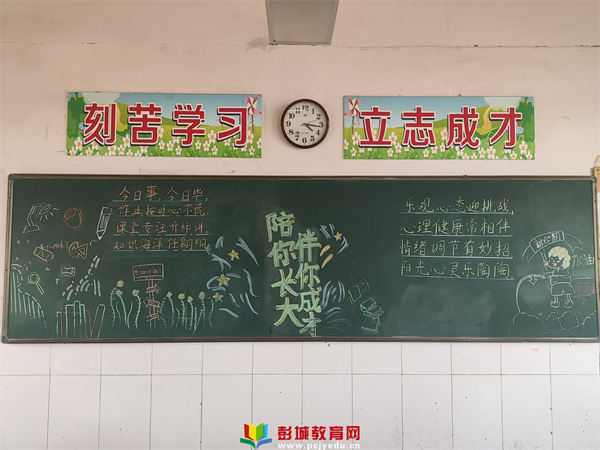 刻苦学习
立志成才
今日事，今日毕，
作业按时心不慌，
课堂专注齐师讲
知识海洋任翱翔
陪你长大
伴你成才
乐观心态迎挑战，
心理健康常相伴
情绪调节有妙招
阳光心灵乐陶陶
加油
彭城教育网
www.pcjyedu.cn